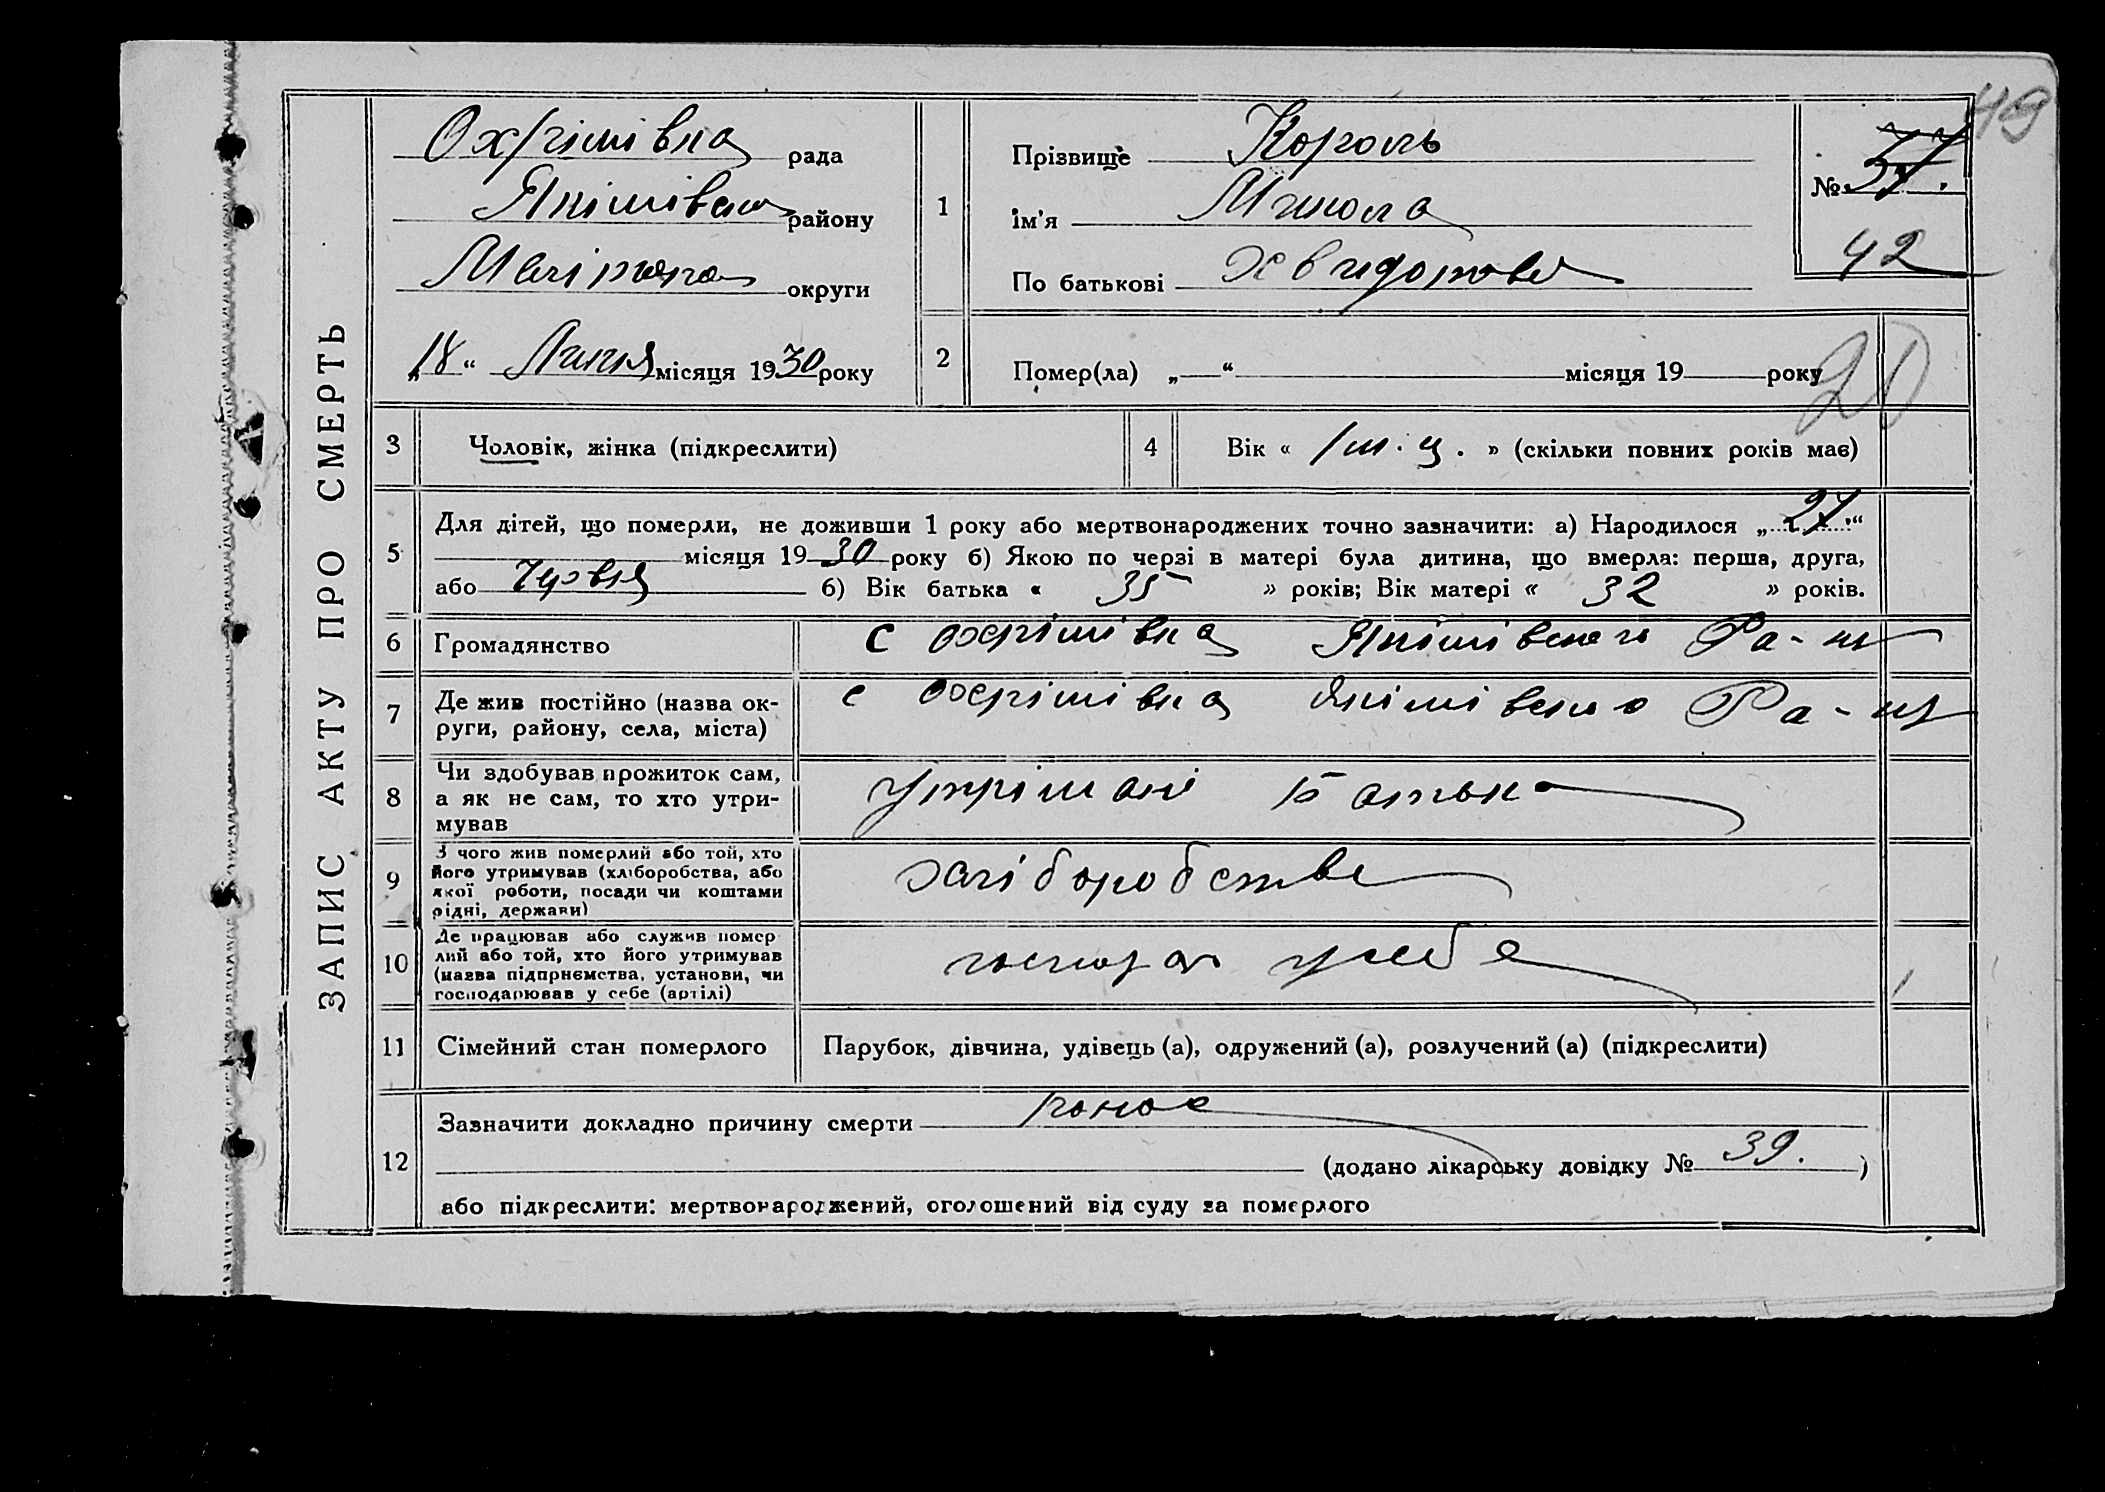 ЗАПИС АКТУ ПРО СМЕРТЬ
49
Охрімівка рада
Якімівськ району
Маріпол округи
„18“ Липня місяця 1930 року
1
Прізвище Король
ім'я Микола
По батькові Хвидорове
№ 37.
42
2
Помер(ла) „ “ місяця 19 року
20
3
Чоловік, жінка (підкреслити)
4
Вік « 1 м.ц. » (скільки повних років має)
5
Для дітей, що померли, не доживши 1 року або мертвонароджених точно зазначити: а) Народилося „27.“
місяця 1930 року б) Якою по черзі в матері була дитина, що вмерла: перша, друга,
або б) Вік батька « 35 » років; Вік матері « 32 » років.
6
Громадянство
с охрімівка Якімівсксго Ра-ну
7
Де жив постійно (назва ок-
руги, району, села, міста)
с охрімівка Якімівсько Ра-ну
8
Чи здобував прожиток сам,
а як не сам, то хто утри-
мував
утрімані батька
9
З чого жив померлий або той, хто
його утримував (хліборобства, або
якої роботи, посади чи коштами
рідні, держави)
хліборобства
10
Де працював або служив помер
лий або той, хто його утримував
(назва підприємства, установи, чи
господарював у себе (артілі)
господар усебе
11
Сімейний стан померлого
Парубок, дівчина, удівець (а), одружений (а), розлучений (а) (підкреслити)
12
Зазначити докладно причину смерти понос
(додано лікарську довідку № 39. )
або підкреслити: мертвонароджений, оголошений від суду за померлого